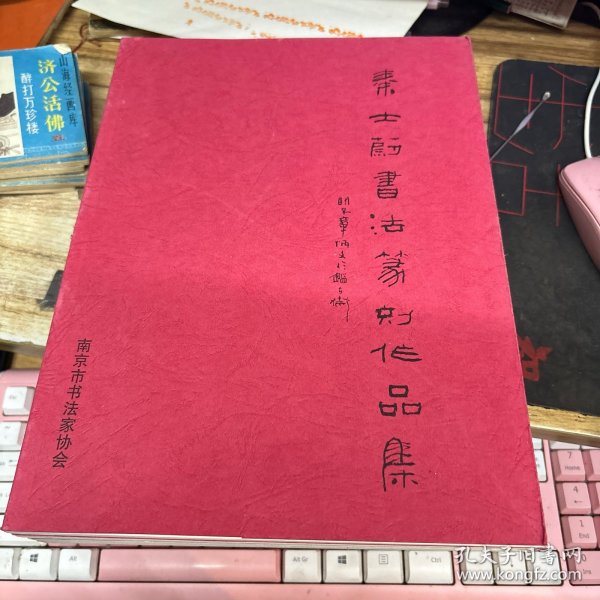 秦士蔚書法篆刻作品集
南京市书法家协会
山海经画库
济公活佛
醉打万珍楼
Alt
Alt Gr
Ctrl
7
Home
4
1
End
0
Ins
孔夫子旧书网
www.kongfz.com